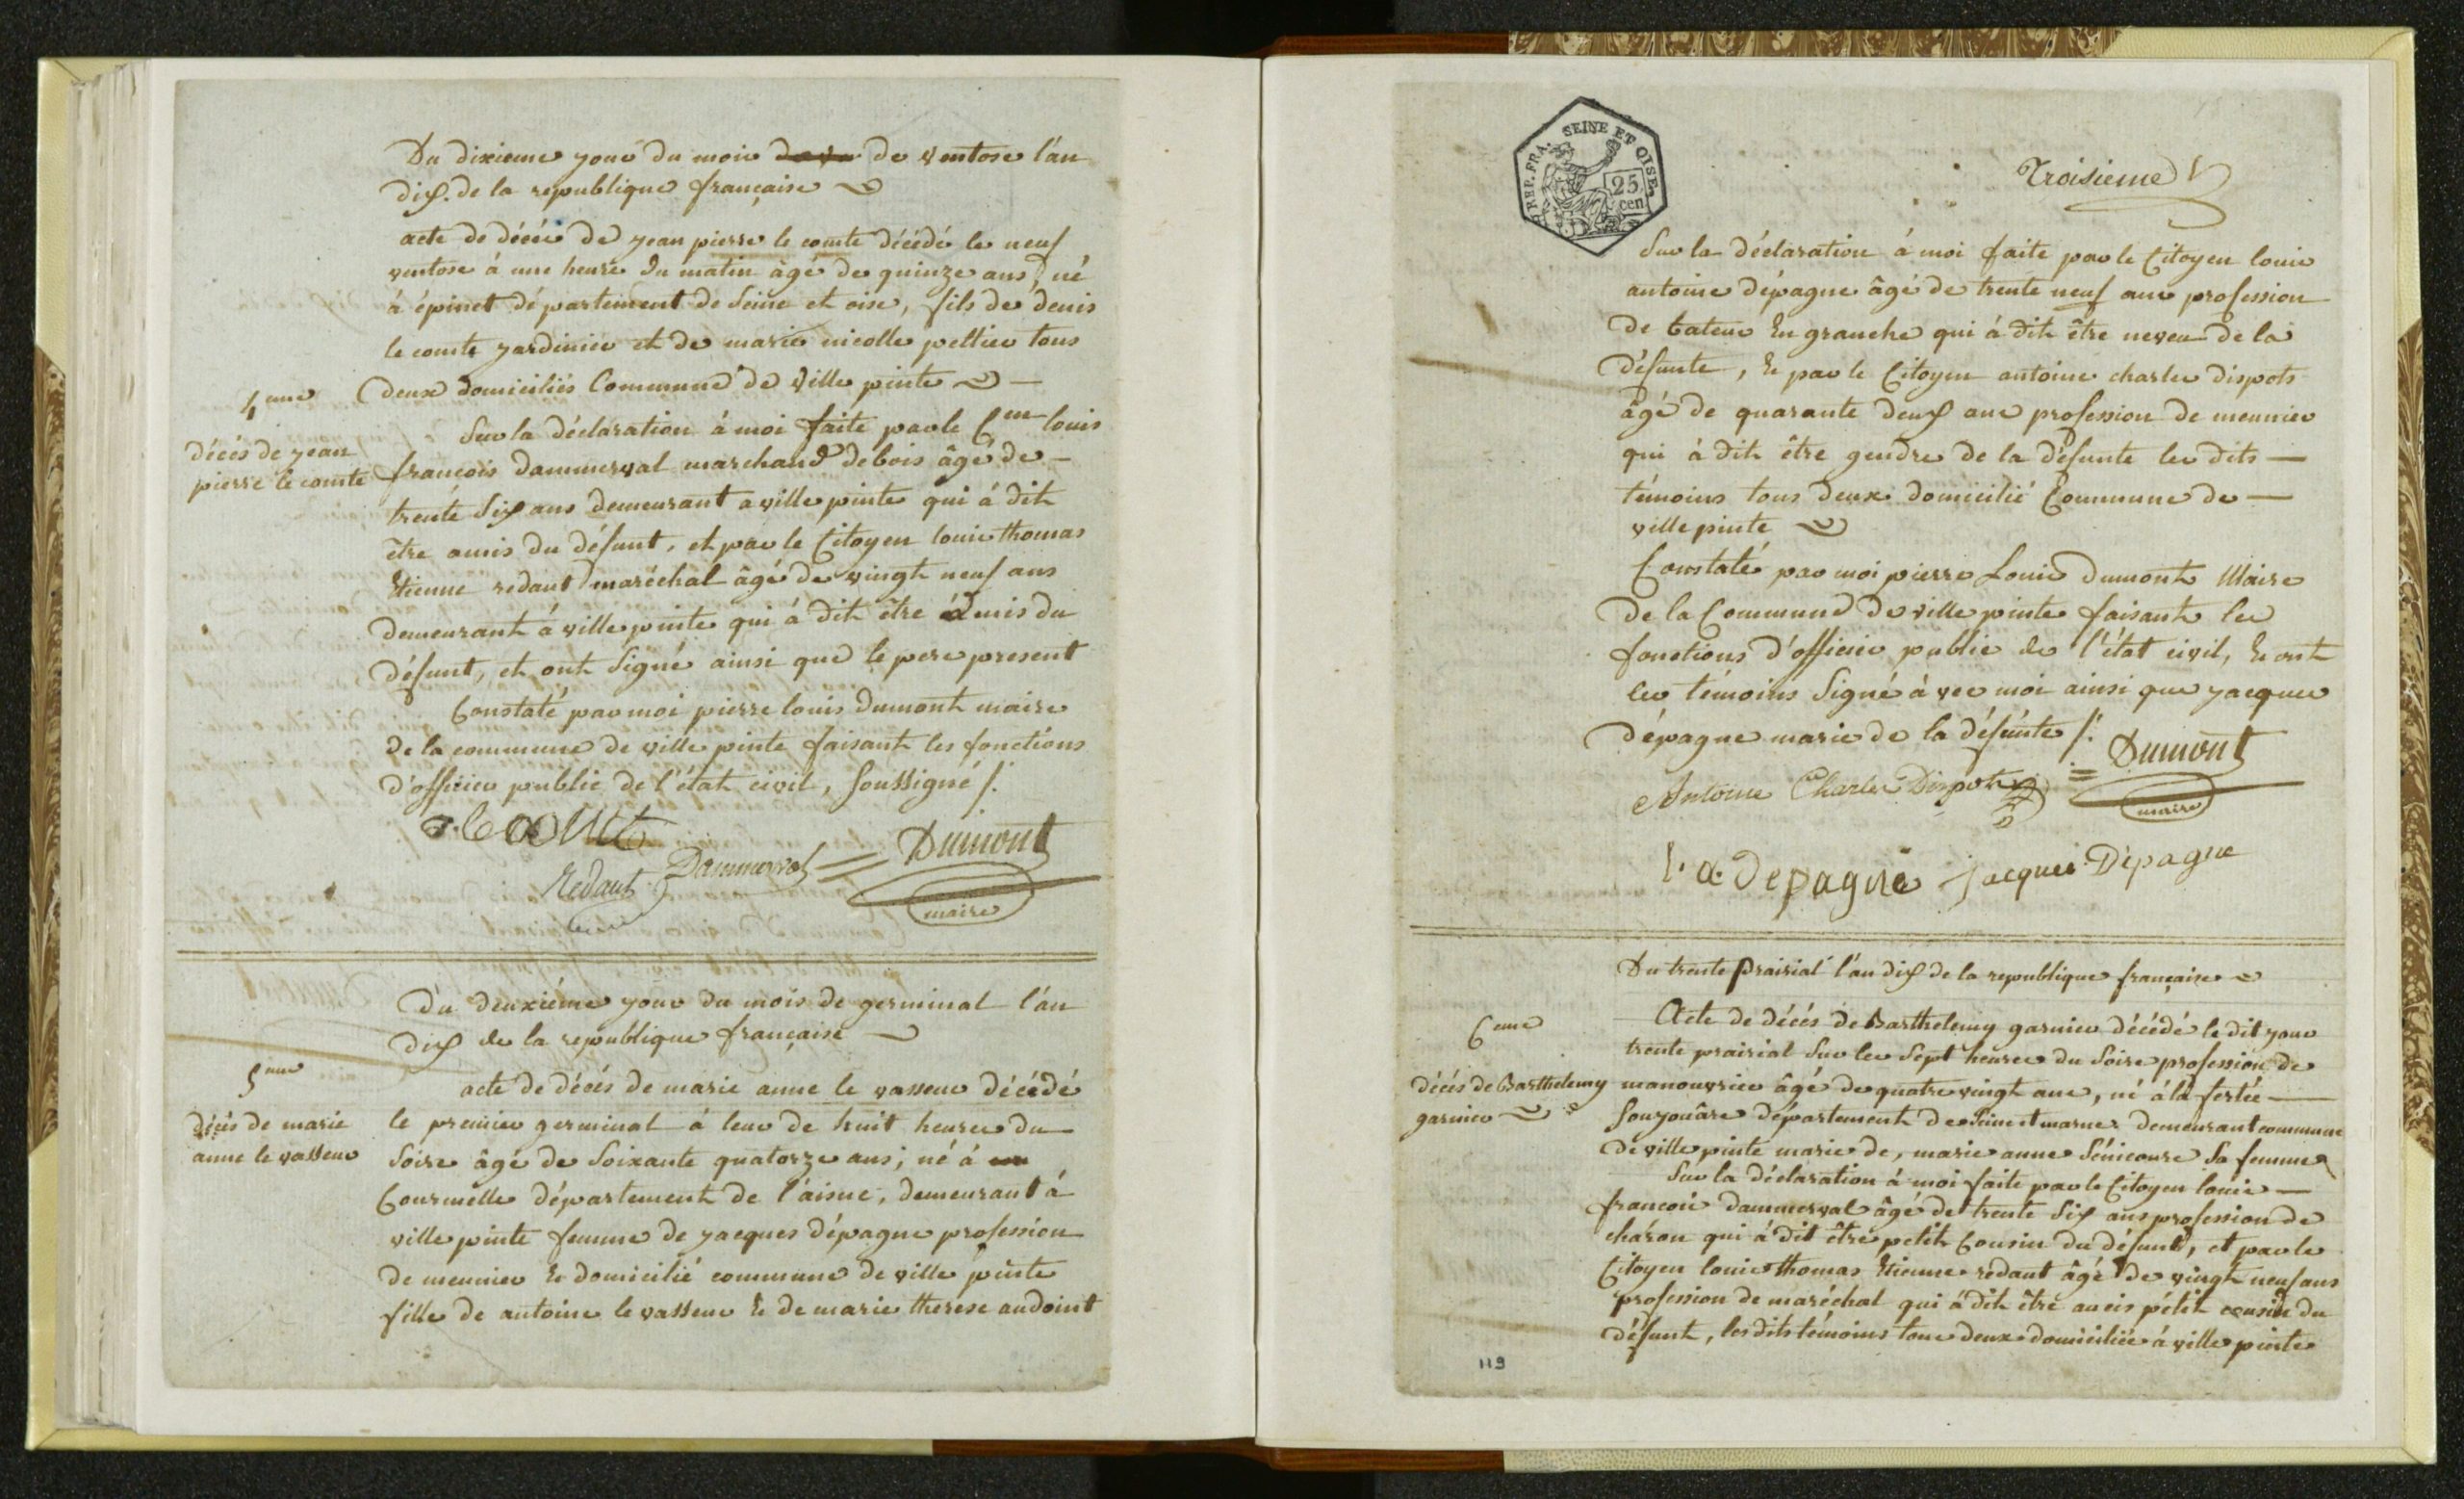 Du dixieme jour du mois de ventose l'an
dix. de la republique française
acte de décès de jean pierre le comte décédé le neuf
ventose à une heure du matin âgé de quinze ans, né
à épinet département de Seine et oise, fils de denis
le comte jardinier et de marie nicolle peltier tous
deux domiciliés Commune de Ville pinte
4eme
décés de jean
pierre le comte
Sur la déclaration à moi faite par le Cen louis
françois dammerval marchand de bois âgé de
trente Six ans demeurant a ville pinte qui à dit
être amis du défunt, et par le Citoyen louis thomas
Etienne redant maréchal âgé de vingt neuf ans
demeurant à ville pinte qui à dit être amis du
défunt, et ont Signé ainsi que le pere present
Constaté par moi pierre louis dumont maire
de la commune de ville pinte faisant les fonctions
d'officier public de l'état civil, Soussigné /.
le comte
Redant Dammerval Dumont
maire
Du deuxiéme jour du mois de germinal l'an
dix de la republique française
5eme
décés de marie
anne le vasseur
acte de décés de marie anne le vasseur décédé
le premier germinal à leur de huit heures du
Soire âgé de Soixante quatorze ans, né à
Courmelle département de l'aisne, demeurant à
ville pinte femme de jacques dépagne profession
de meunier & domicilié commune de ville pinte
fille de antoine le vasseur & de marie therese audoint
REP. FRA. SEINE ET OISE
25
cen
Troisieme
Sur la déclaration à moi faite par le Citoyen louis
antoine dépagne âgé de trente neuf ans profession
de bateur En granche qui à dit être neveu de la
défunte, & par le Citoyen antoine charles dispots
âgé de quarante deux ans profession de meunier
qui à dit être gendre de la défunte les dits
témoins tous deux domicilié Commune de
ville pinte
Constaté par moi pierre Louis dumont Maire
de la Commune de ville pinte faisant les
fonctions d'officier public de l'état civil, & ont
les témoins Signé à vec moi ainsi que jacques
dépagne marie de la défunte /.
Dumont
maire
Antoine Charles Dispots
l. a. depagne jacques Dépagne
Du trente Prairial l'an dix de la republique française
6eme
décés de Barthelemy
garnier
Acte de décés de Barthelemy garnier décédé le dit jour
trente prairial Sur les Sept heures du Soire profession de
manouvrier âgé de quatre vingt ans, né à la fertée
Soujouâre département de Seine et marne demeurant commune
de ville pinte marie de, marie anne Sénicoure Sa femme
Sur la déclaration à moi faite par le Citoyen louis
francois dammerval âgé de trente Six ans profession de
cháron qui à dit être petit Cousin du défunt, et par le
Citoyen louis thomas Etienne redant âgé de vingt neuf ans
profession de maréchal qui à dit être aucis pétit cousin du
défunt, les dits témoins tous deux domiciliée à ville pinte
119